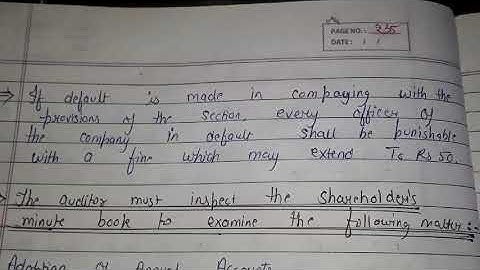 PAGE NO.: 235
DATE: / /
⇒ If default is made in compaying with the
provisions of the section every officer of
the company in default shall be punishable
with a fine which may extend To Rs 50.
⇒ The auditor must inspect the shareholder's
minute book to examine the following matter :-
Adoption of Annual Accounts